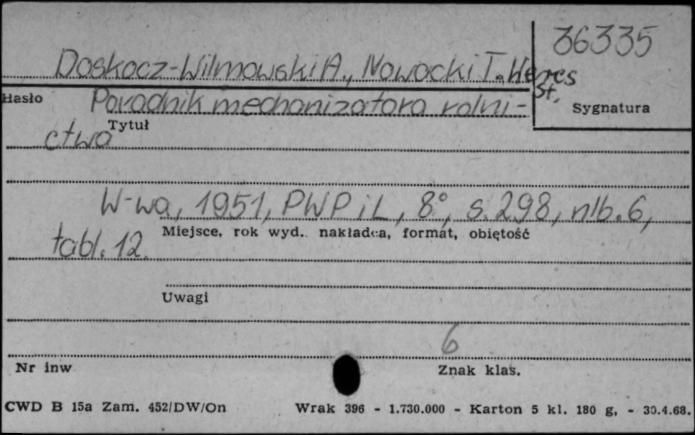 36335
Doskocz-Wilmowski A., Nowacki T. Heres St.
Hasło
Sygnatura
Poradnik mechanizatora rolni-
Tytuł
ctwa
W-wa, 1951, PWP i L, 8°, s. 298, nlb. 6,
Miejsce, rok wyd. nakładca, format, objętość
tabl. 12.
Uwagi
6
Nr inw
Znak klas.
CWD B 15a Zam. 452/DW/On Wrak 396 - 1.730.000 - Karton 5 kl. 180 g, - 30.4.68.